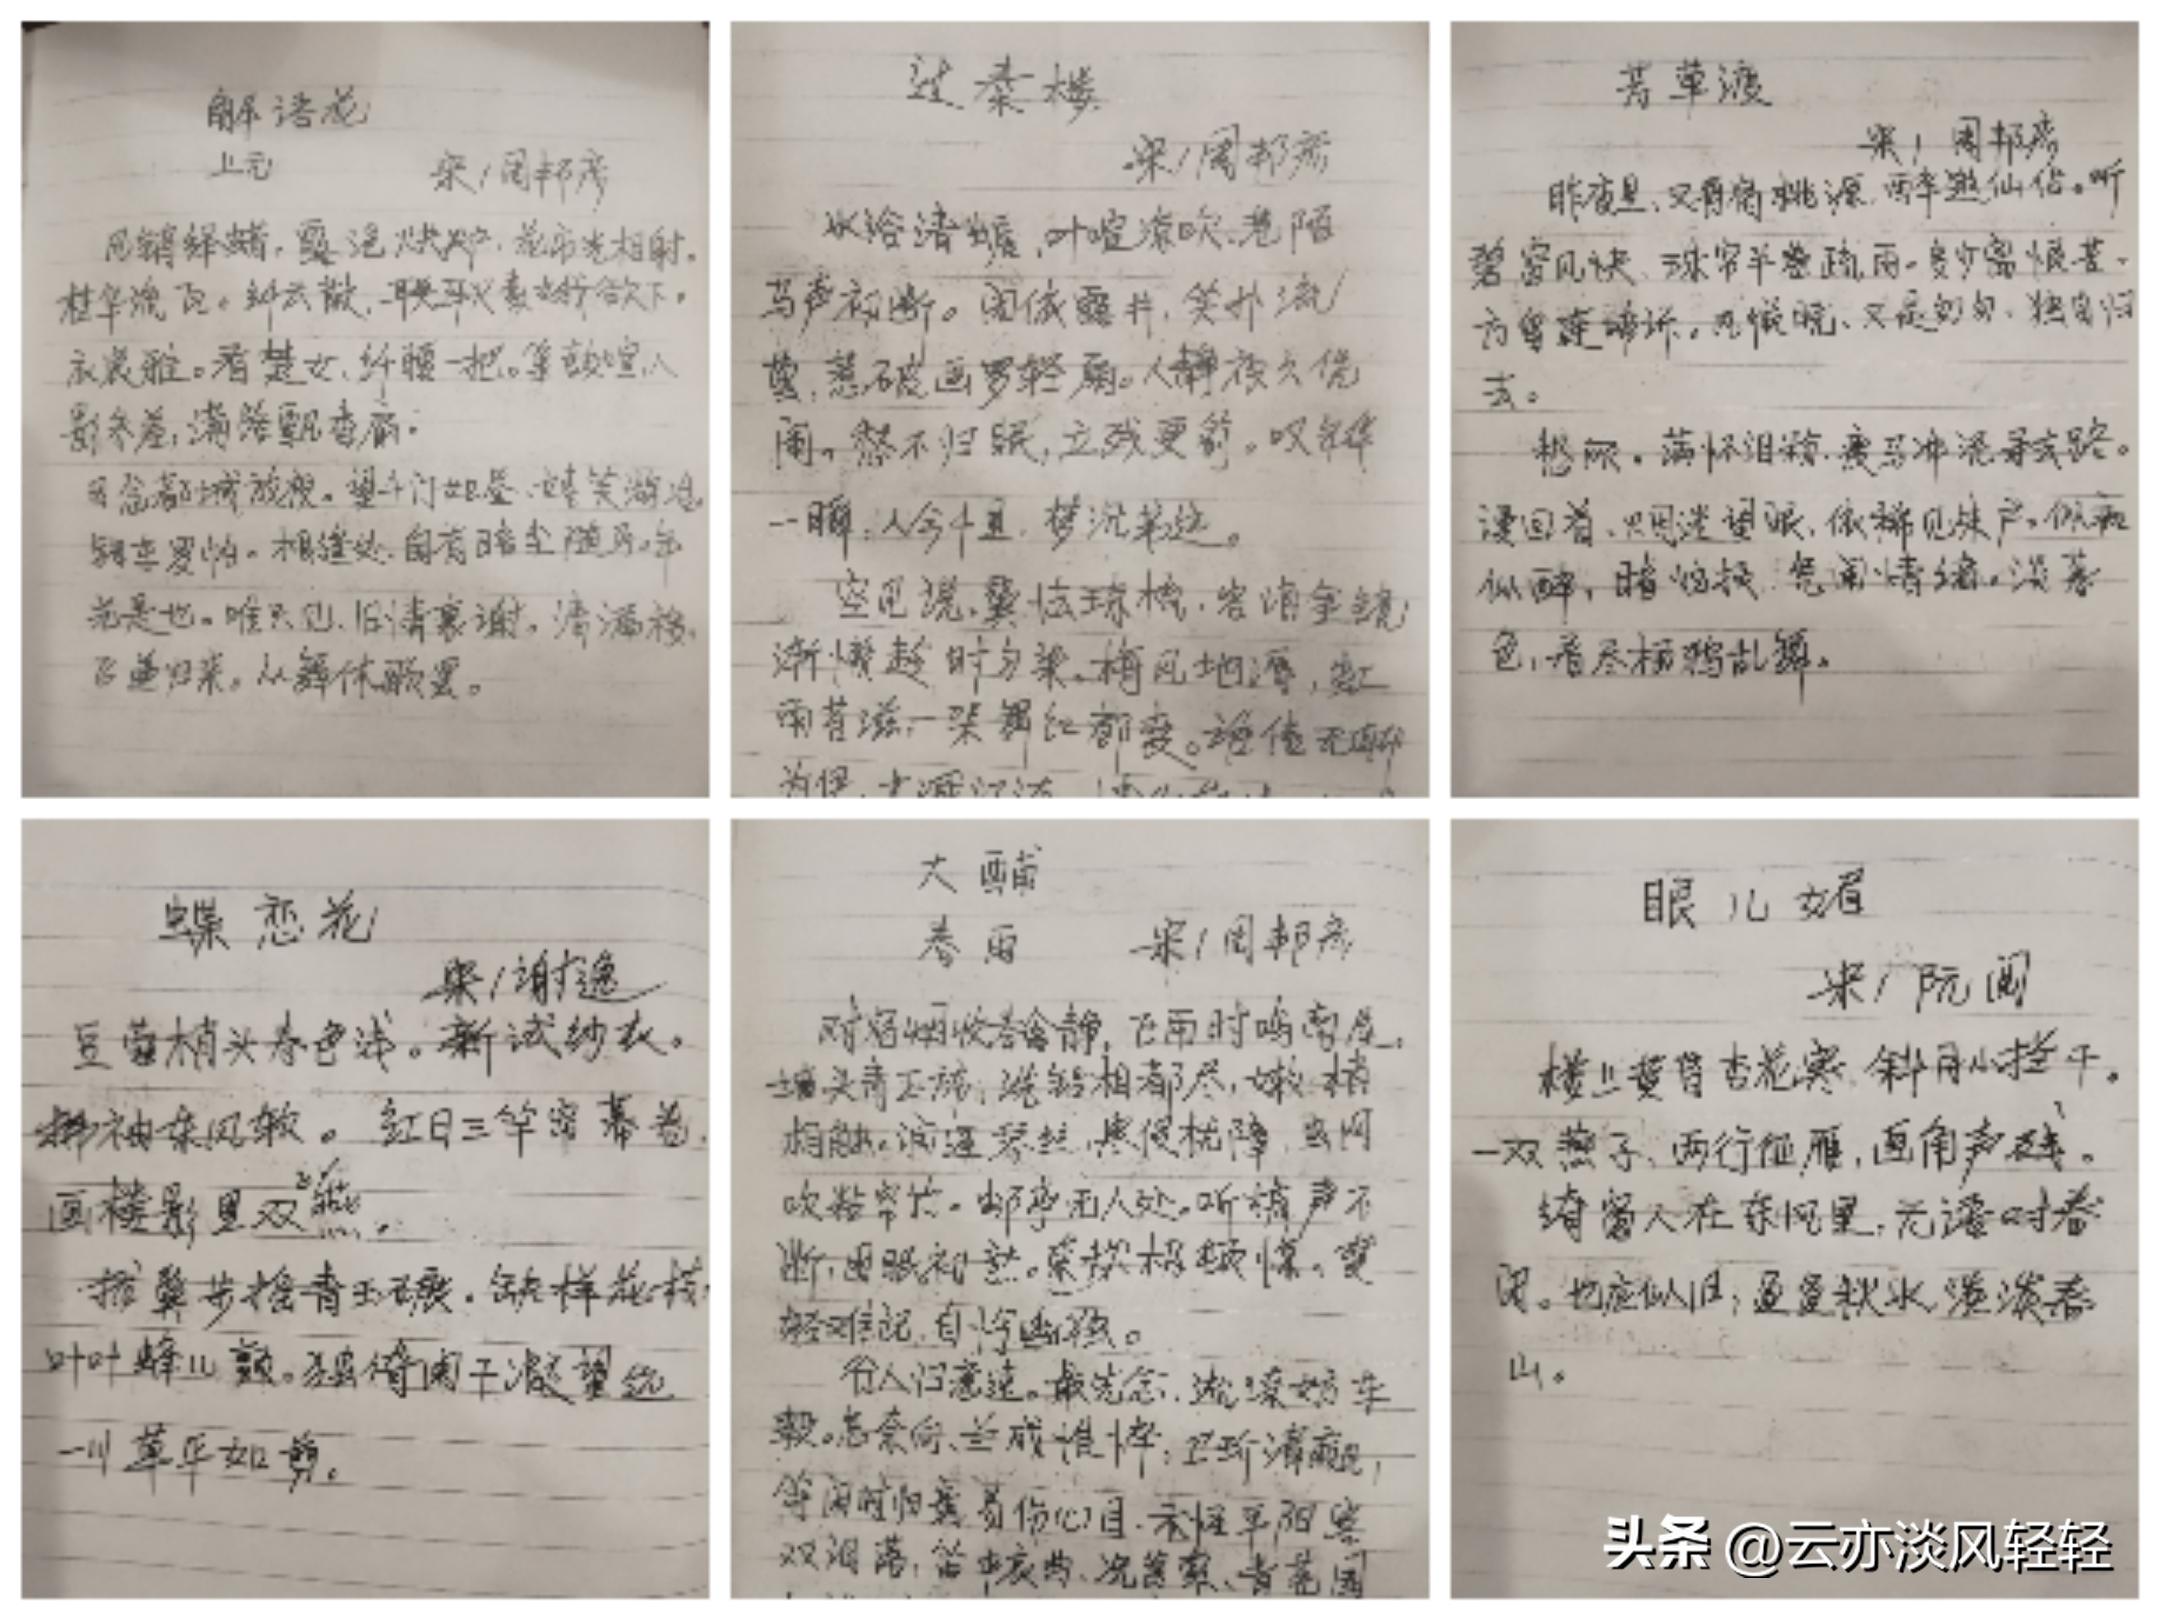 解语花
上元 宋/周邦彦
风销绛蜡,露浥烘炉,花市光相射。
桂华流瓦。纤云散,耿耿素娥欲下。
衣裳雅。看楚女,纤腰一把。箫鼓喧,人
影参差,满路飘香麝。
因念都城放夜。望千门如昼,嬉笑游冶
钿车罗帕。相逢处,自有暗尘随马。年
光是也。唯只见、旧情衰谢。清漏移,
飞盖归来。从舞休歌罢。
过秦楼
宋/周邦彦
水浴清蟾,叶喧凉吹,巷陌
马声初断。闲依露井,笑扑流
萤,惹破画罗轻扇。人静夜久凭
阑。愁不归眠,立残更箭。叹年华
一瞬,人今千里,梦沉书远。
空见说,鬓怯琼梳,容消金镜
渐懒趁时匀染。梅风地溽,虹
雨苔滋,一架舞红都变。谁信无聊
为伊,才减江淹
芳草渡
宋/周邦彦
昨夜里,又再宿桃源,醉邀仙侣。听
碧窗风快,珠帘半卷疏雨。多少离恨苦。
方留连啼诉。凤帐晓,又是匆匆,独自归
去。
愁顾。满怀泪粉,瘦马冲泥寻去路。
漫回首、烟迷望眼,依稀见朱户。似痴
似醉,暗恼损、凭阑情绪。淡暮
色,看尽栖鸦乱舞。
蝶恋花
宋/谢逸
豆蔻梢头春色浅。新试纱衣。
拂袖东风软。红日三竿帘幕卷,
画楼影里双飞燕。
拢鬓步摇青玉碾。缺样花枝
叶叶蜂儿颤。独倚阑干凝望远
一川草平如剪。
大酺
春雨 宋/周邦彦
对宿烟收,春禽静,飞雨时鸣高屋。
墙头青玉旆,洗铅相都尽,嫩梢
相触。润逼琴丝,寒侵枕障,虫网
吹粘帘竹。邮亭无人处,听檐声不
断,困眠初熟。奈愁极顿惊。梦
轻难记,自怜幽独。
行人归意速。最先念、流潦妨车
毂。怎奈向、兰成憔悴,卫玠清羸,
等闲时归鬓易伤心目。未怪平阳客
双泪落,笛中哀曲,况萧索、青芜国
眼儿媚
宋/阮阅
楼上黄昏杏花寒,斜月小拦干。
一双燕子,两行征雁,画角声残。
绮窗人在东风里,无语对春
闲。也应似旧,盈盈秋水,淡淡春
山。
头条 @云亦淡风轻轻